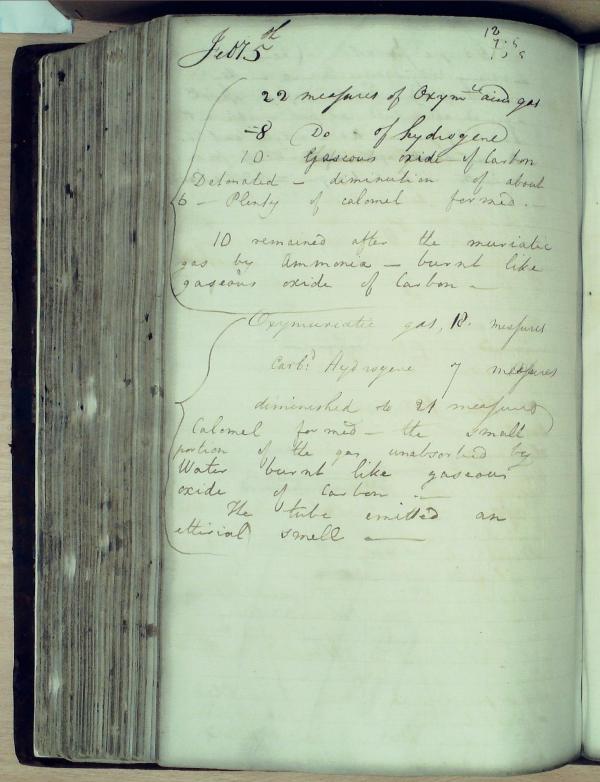 Feby 5th
12
7.5
22 measures of Oxymtic acid gas
8 Do of hydrogene
10 Gaseous oxide of Carbon
Detonated – diminution of about
6 – Plenty of calomel formed. –
10 remained after the muriatic
gas by Ammonia – burnt like
gaseous oxide of Carbon –
Oxymuriatic gas, 18. measures
Carbd Hydrogene 7 measures
diminished to 21 measures
Calomel formed – the small
portion of the gas unabsorbed by
Water burnt like gaseous
oxide of Carbon –
The tube emitted an
etherial smell –